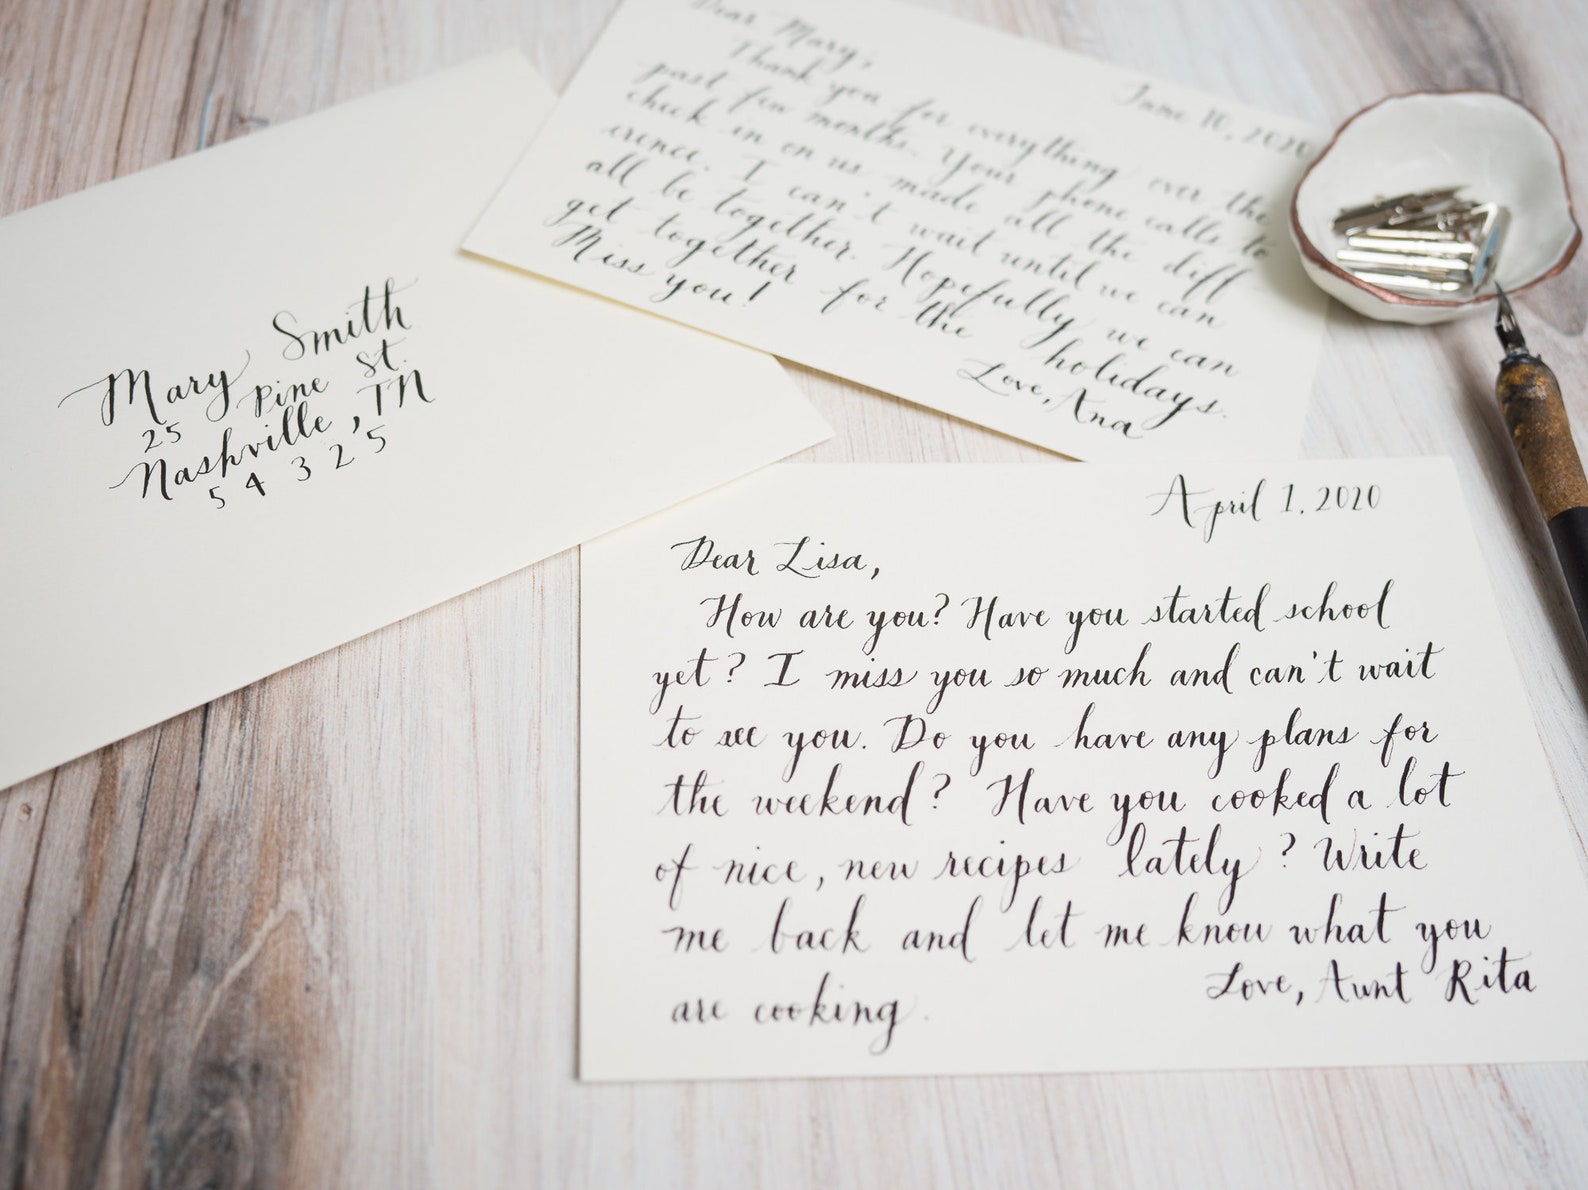 Mary Smith
25 Pine St.
Nashville, TN
54325
June 10, 2020
Dear Mary,
Thank you for everything over the
past few months. Your phone calls to
check in on us made all the diff-
erence. I can't wait until we can
all be together. Hopefully we can
get together for the holidays.
Miss you!
Love, Ana
April 1, 2020
Dear Lisa,
How are you? Have you started school
yet? I miss you so much and can't wait
to see you. Do you have any plans for
the weekend? Have you cooked a lot
of nice, new recipes lately? Write
me back and let me know what you
are cooking.
Love, Aunt Rita